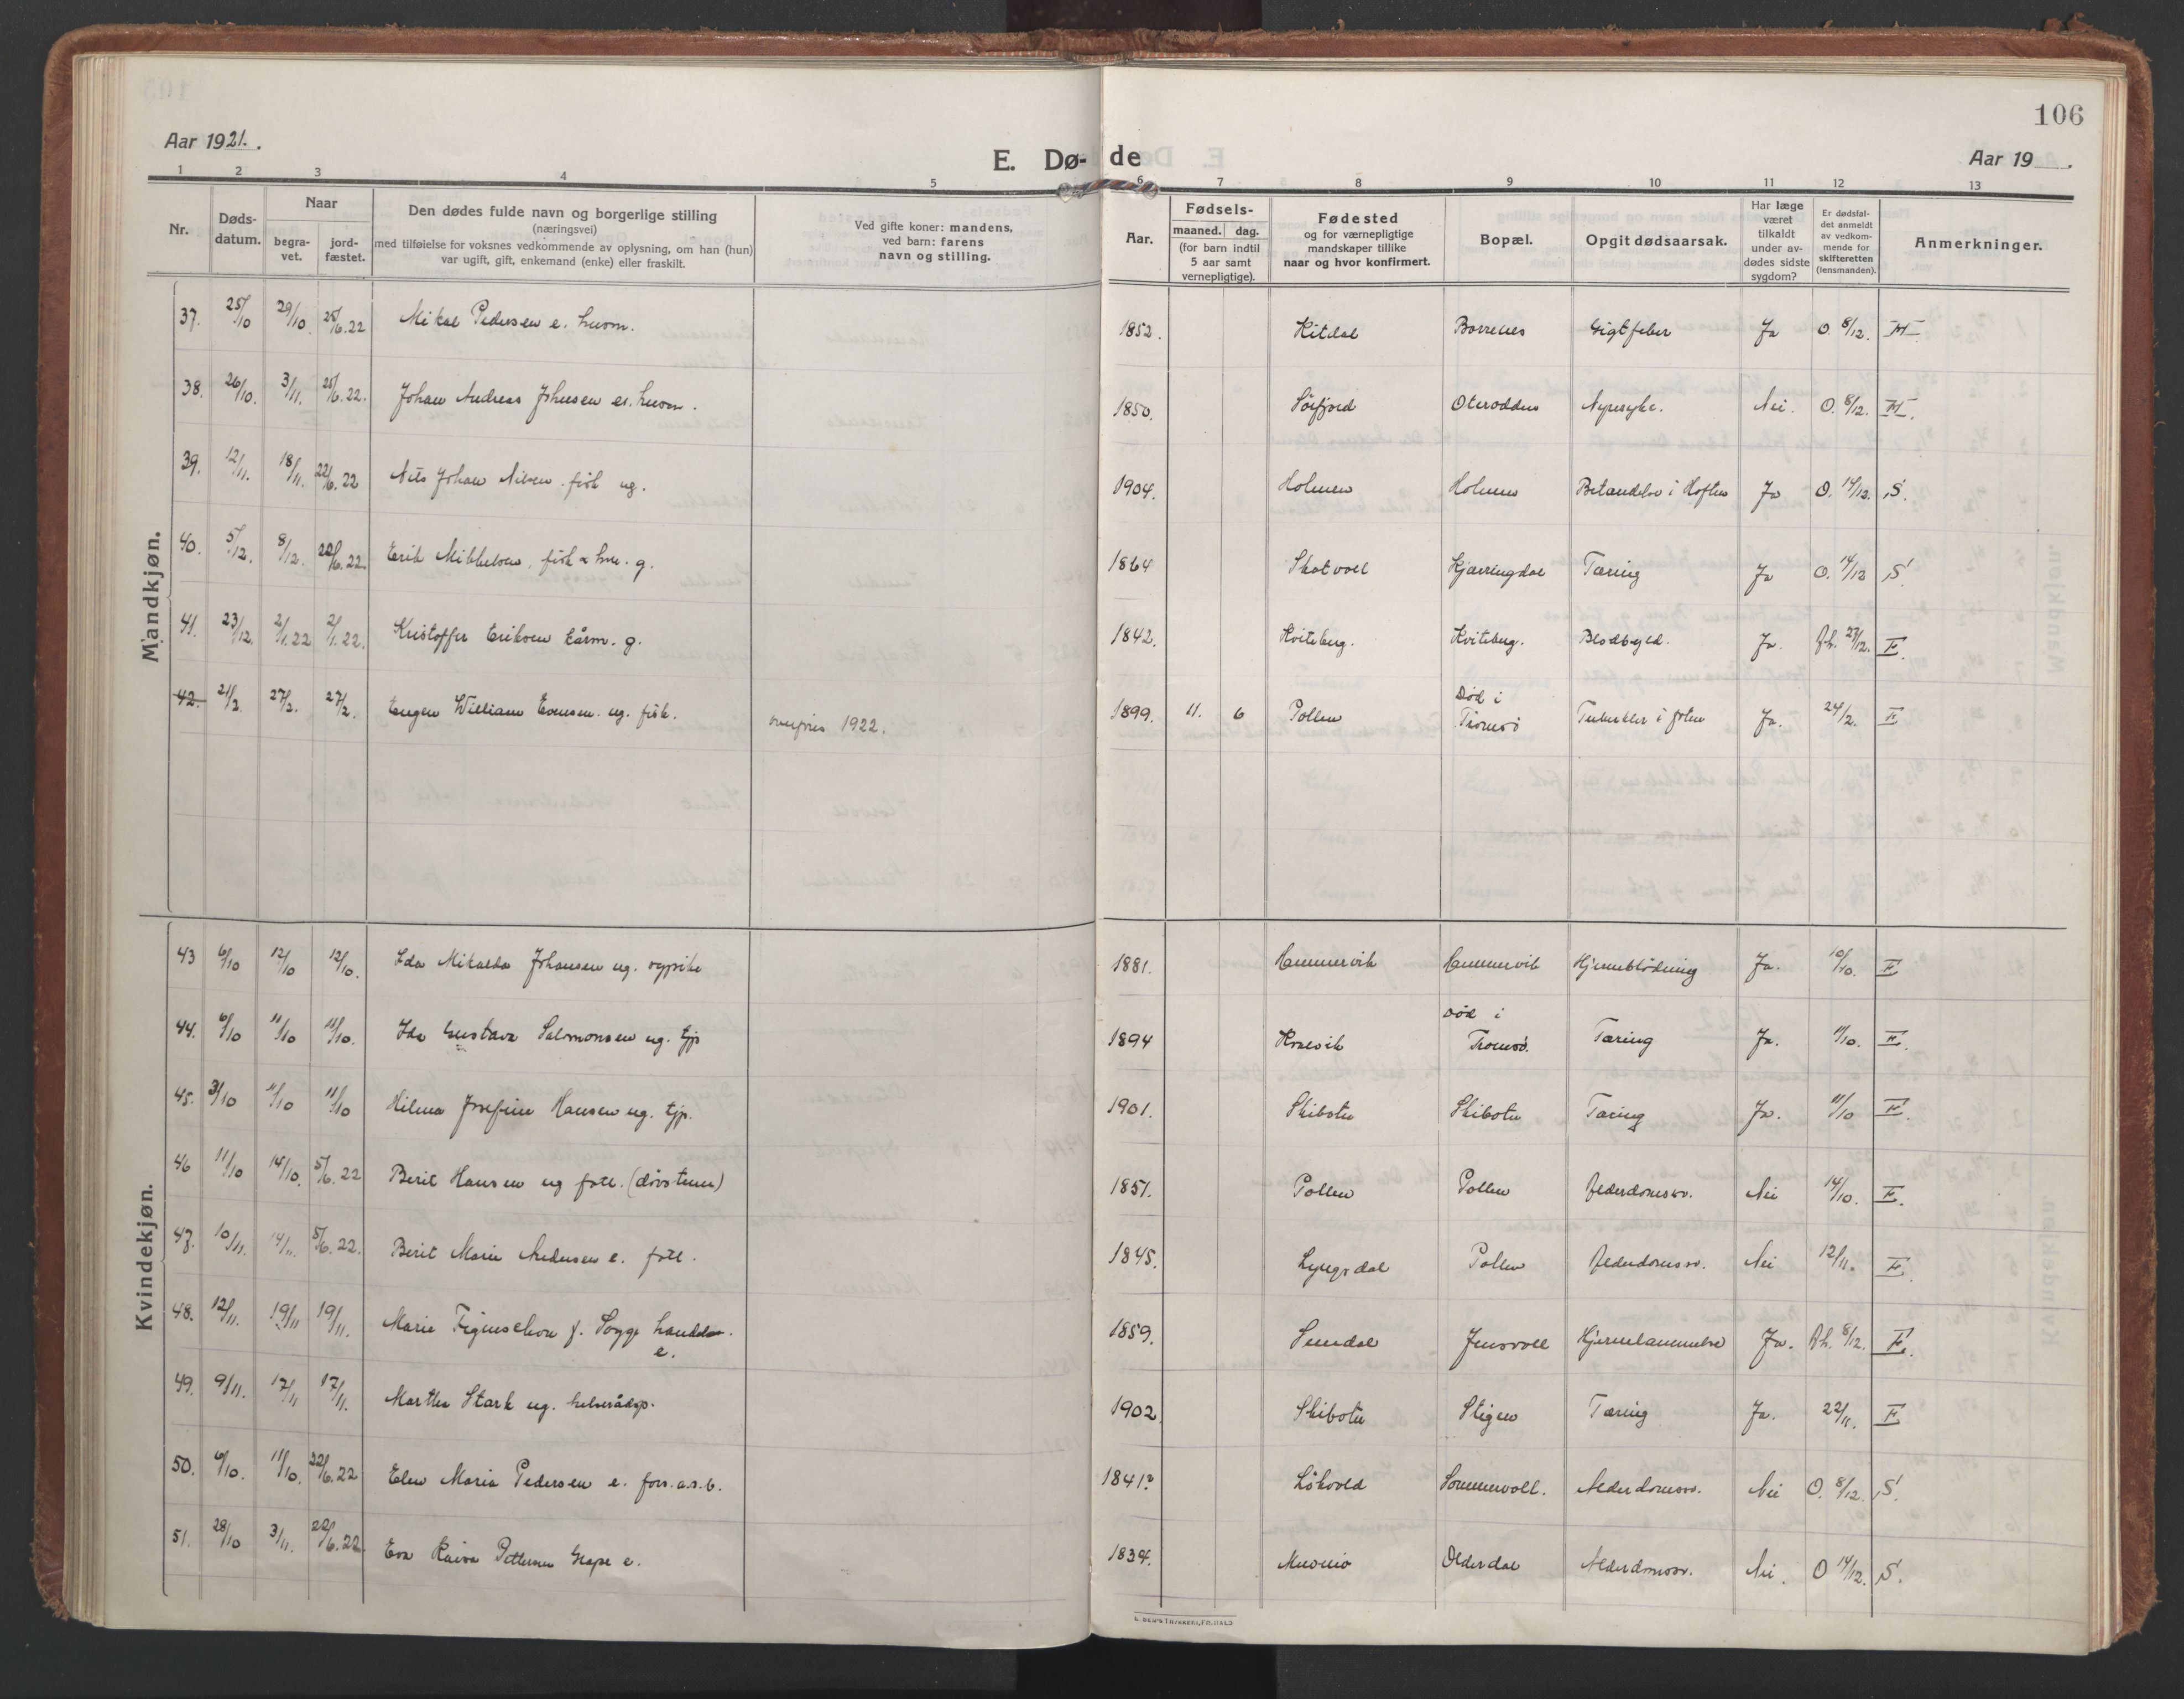 106
Aar 1921.
E. Dø- de
Aar 19 .
1 2 3 4 5 6 7 8 9 10 11 12 13
Nr.
Døds-
datum.
Naar
begra-
vet.
jord-
fæstet.
Den dødes fulde navn og borgerlige stilling
(næringsvei)
med tilføielse for voksnes vedkommende av oplysning, om han (hun)
var ugift, gift, enkemand (enke) eller fraskilt.
Ved gifte koner: mandens,
ved barn: farens
navn og stilling.
Aar.
Fødsels-
maaned. dag.
(for barn indtil
5 aar samt
vernepligtige).
Fødested
og for værnepligtige
mandskaper tillike
naar og hvor konfirmert.
Bopæl.
Opgit dødsaarsak.
Har læge
været
tilkaldt
under av-
dødes sidste
sygdom?
Er dødsfal-
det anmeldt
av vedkom-
mende for
skifteretten
(lensmanden).
Anmerkninger.
Mandkjøn.
37. 25/10 29/10. 25/6.22 Mikal Pedersen e. husm. 1852. Kitdal Borrenes Gigtfeber Ja O. 8/12.
38. 26/10. 3/11. 25/6.22. Johan Andreas Johnsen e. husm. 1850. Sørfjord Oteroddus Nyresyke. Nei. O. 8/12.
39. 12/11. 18/11. 22/6.22 Nils Johan Nilsen. fisk ug. 1904. Holmen Holmen Betændelse i Hoften Ja O. 14/12. S.
40. 5/12. 8/12. 22/6.22 Erik Mikkelsen, fisk & hm. g. 1864 Skatvoll Kjærringdal Tæring Ja O. 14/12 S.
41. 23/12. 2/1.22 2/1.22. Kristoffer Eriksen kårm. g. 1842. Kviteberg. Kviteberg. Blodbyld. Ja. 27/12. F.
42. 21/2. 27/2. 27/2. Eugen William Evensen. ug. fisk. overføres 1922. 1899. 11. 6 Pollen Død i Tromsø Tuberkler i foten Ja. 24/2. F
Kvindekjøn.
43 6/10 12/10 12/10. Ida Mikalda Johansen ug. sypike 1881. Hammervik Hammervik Hjerneblödning Ja. 10/10. F
44. 6/10 11/10 11/10. Ida Gustava Salmonsen ug. tjp 1894 Kvalvik død i Tromsö. Tæring Ja. 11/10. F.
45. 3/10 11/10 11/10 Hilma Josefine Hansen ug. tjp. 1901. Skibotn Skibotn Tæring Ja. 11/10 F.
46 11/10 14/10. 5/6.22 Berit Hansen ug fatt. (døvstum) 1851. Pollen Pollen Alderdomssv. Nei 14/10. F.
47. 10/11. 14/11. 5/6.22. Berit Marie Andersen e. fatt. 1845. Lyngsdal Pollen Alderdomssv. Nei 12/11. F.
48. 12/11. 19/11 19/11. Marie Figenschou f. Sogge e. 1859. Sundal Jensvoll Hjernelammelse Ja. 8/12. F.
49. 9/11. 17/11 17/11. Martha Stark ug. 1902. Skibotn Stigen Tæring Ja. 22/11. F
50. 6/10. 11/10. 22/6.22 Elen Maria Pedersen e. fors.a.s.b. 1841? Løkvold Sommervoll. Alderdomssv. Nei O. 8/12. S.
51. 28/10 3/11. 22/6.22. Eva Kaisa Pettersen Grape e. 1834. Muonio Olderdal Alderdomssv. Nei. O 14/12. S.